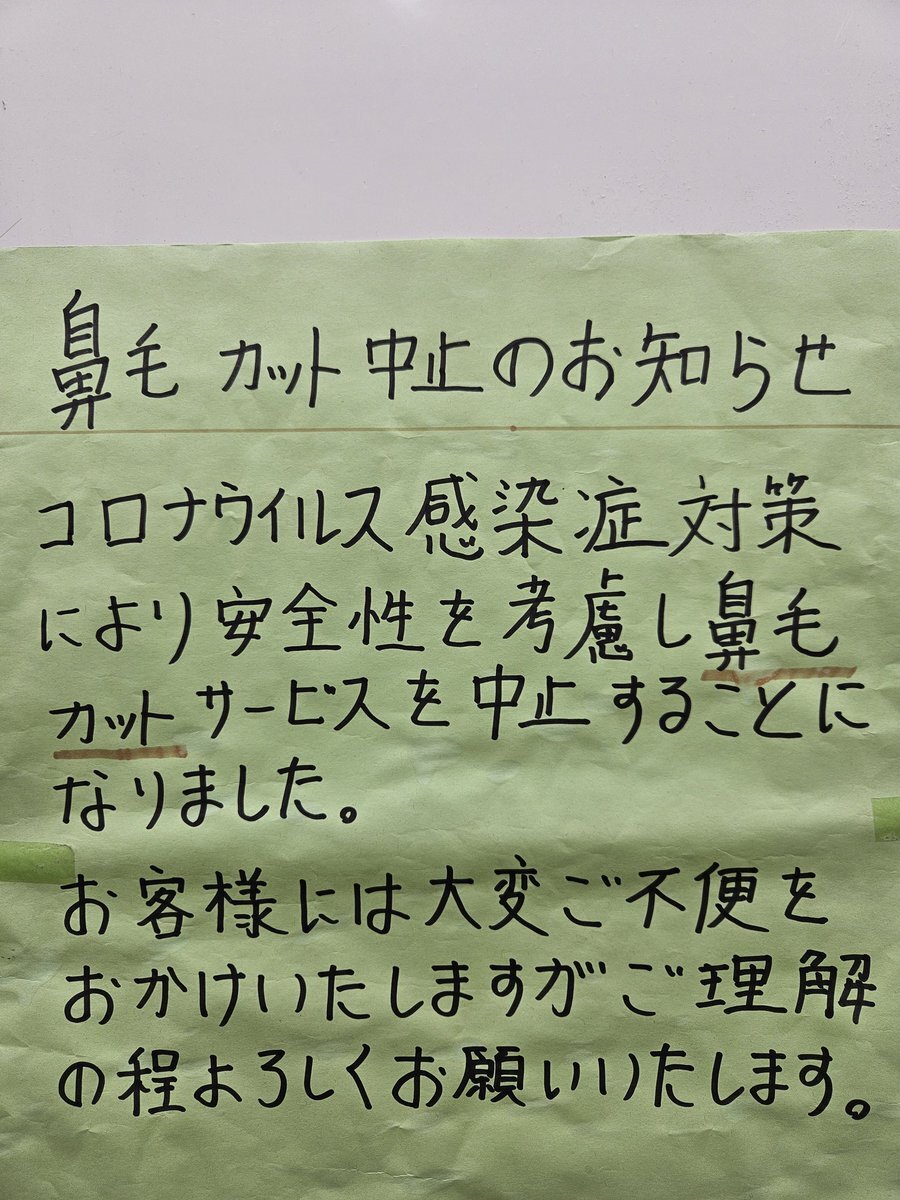 鼻毛 カット 中止のお知らせ
コロナウイルス感染症対策
により安全性を考慮し鼻毛
カットサービスを中止することに
なりました。
お客様には大変ご不便を
おかけいたしますがご理解
の程よろしくお願いいたします。